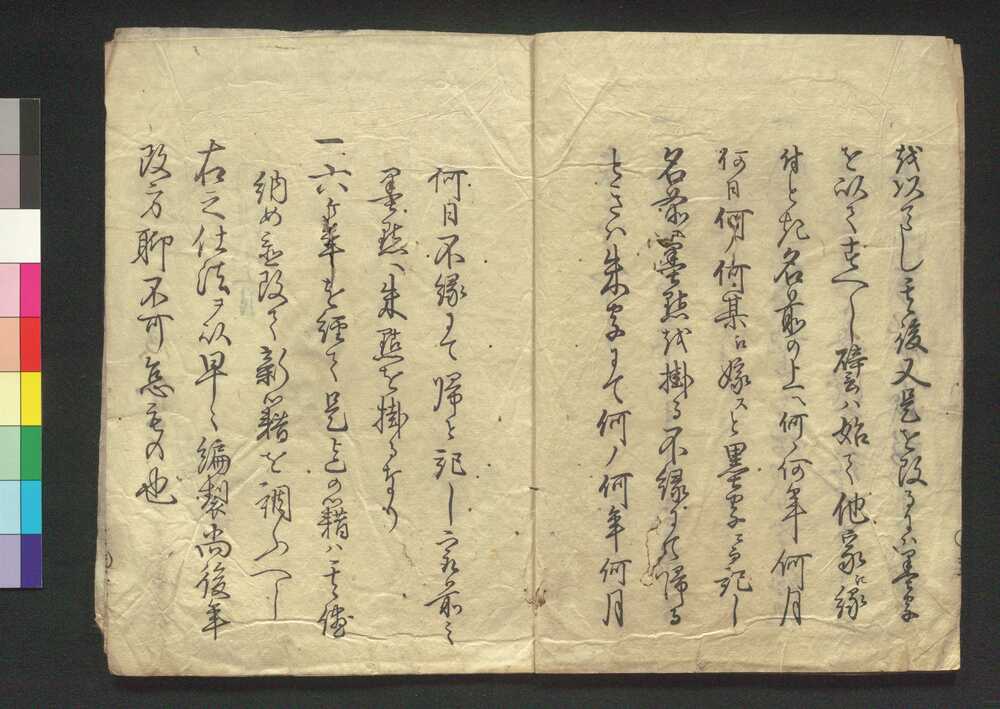 を以てし其後又是を改るハ墨字
を以てすへし譬ハ始て他家ニ縁
付とき名前の上ヘ何ノ何年何月
何日何ノ何某ニ嫁スと墨字ニ而記し
名前墨点を掛る不縁ニて帰る
ときハ朱字ニて何ノ何年何月
何日不縁ニて帰と記し名前之
墨点ヘ朱点を掛るなり
一六ケ年を経て是迄の籍ハ其儘
納め置改て新籍を調ふへし
右之仕法ヲ以早々編製尚後年
改方聊不可怠もの也